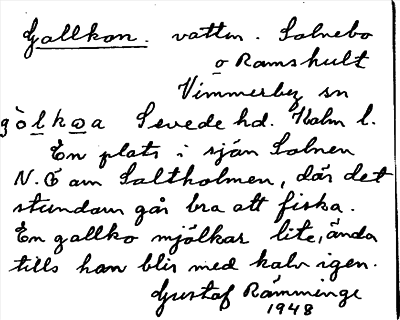 Gallkon. vatten. Solnebo
o Ramshult
Vimmerby sn
gòlkωa Sevede hd. Kalm l.
En plats i sjön Solnen
N.Ö om Saltholmen, där det
stundom går bra att fiska.
En gallko mjölkar lite, ända
tills han blir med kalv igen.
Gustaf Rämminge
1948